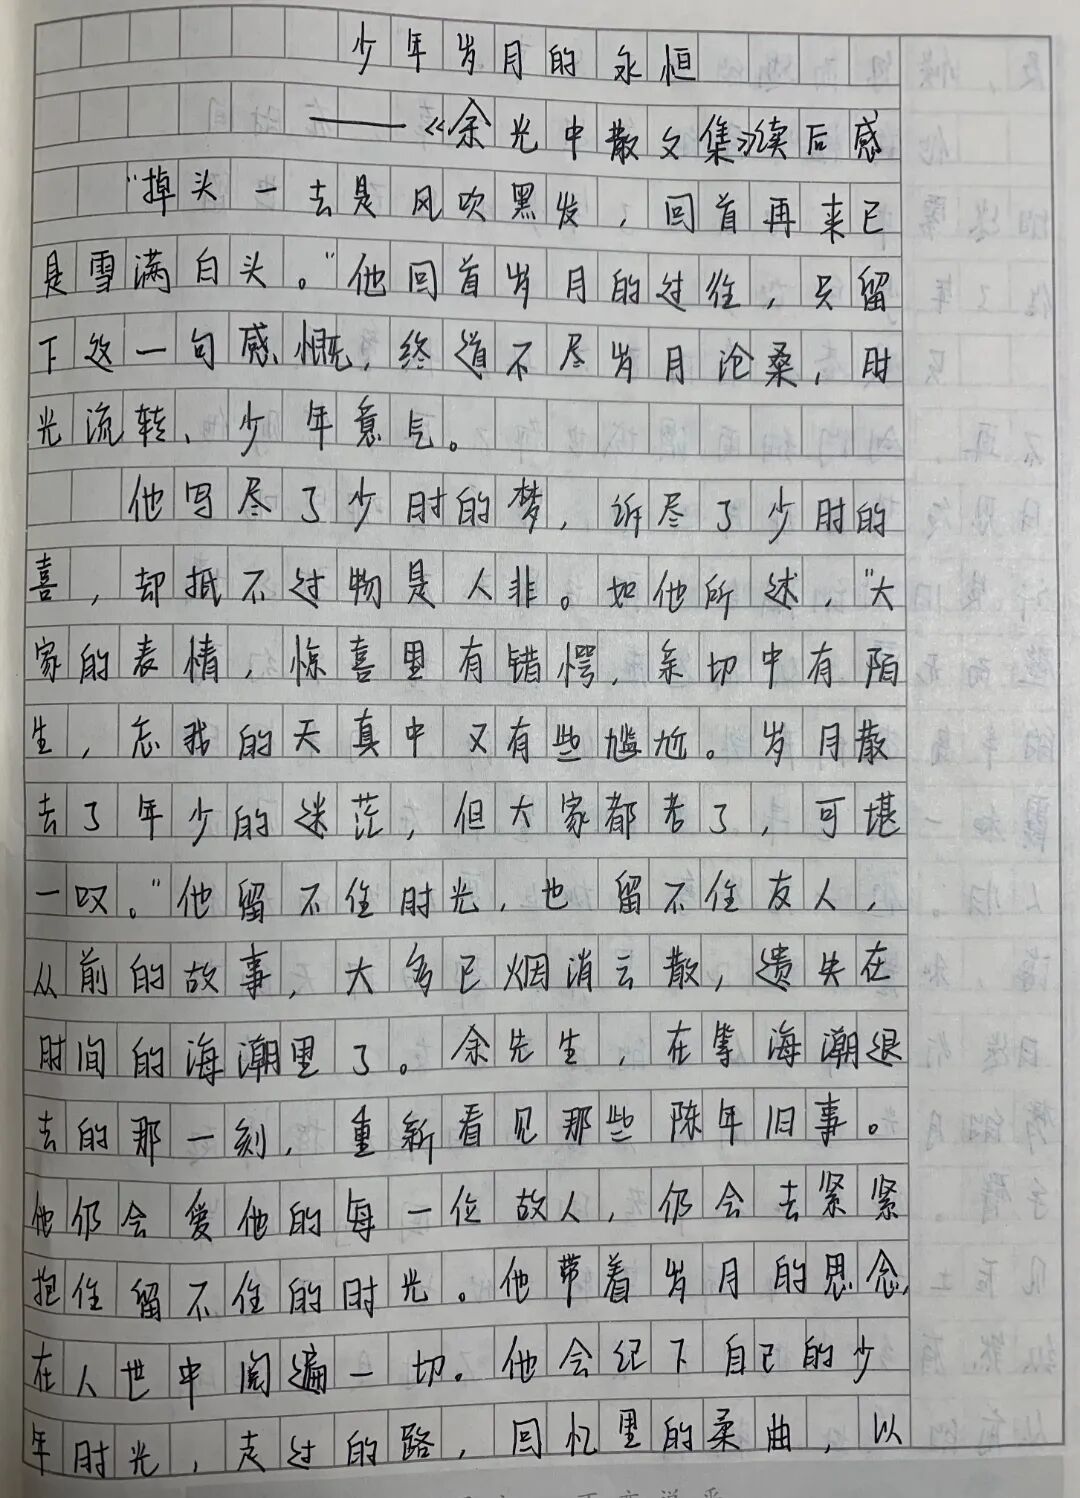 少年岁月的永恒
——《余光中散文集》读后感
"掉头一去是风吹黑发，回首再来已
是雪满白头。"他回首岁月的过往，只留
下这一句感慨，终道不尽岁月沧桑，时
光流转、少年意气。
他写尽了少时的梦，诉尽了少时的
喜，却抵不过物是人非。如他所述，"大
家的表情，惊喜里有错愕，亲切中有陌
生，忘我的天真中又有些尴尬。岁月散
去了年少的迷茫，但大家都老了，可堪
一叹。"他留不住时光，也留不住友人，
从前的故事，大多已烟消云散，遗失在
时间的海潮里了。余先生，在等海潮退
去的那一刻，重新看见那些陈年旧事。
他仍会爱他的每一位故人，仍会去紧紧
抱住留不住的时光。他带着岁月的思念，
在人世中阅遍一切。他会记下自己的少
年时光，走过的路，回忆里的柔曲，以